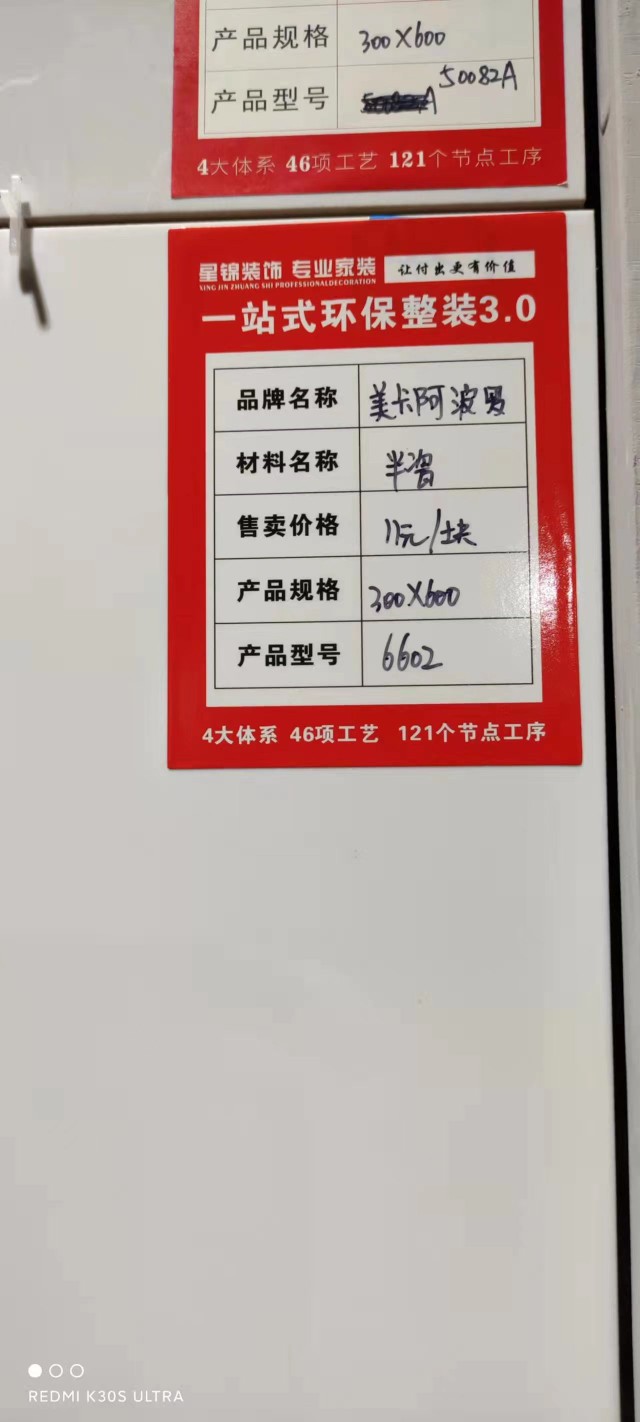 产品规格 300X600
产品型号 50082A
4大体系 46项工艺 121个节点工序
星锦装饰 专业家装 让付出更有价值
XING JIN ZHUANG SHI PROFESSIONALDECORATION
一站式环保整装3.0
品牌名称 美卡阿波罗
材料名称 半瓷
售卖价格 11元/块
产品规格 300X600
产品型号 6602
4大体系 46项工艺 121个节点工序
REDMI K30S ULTRA